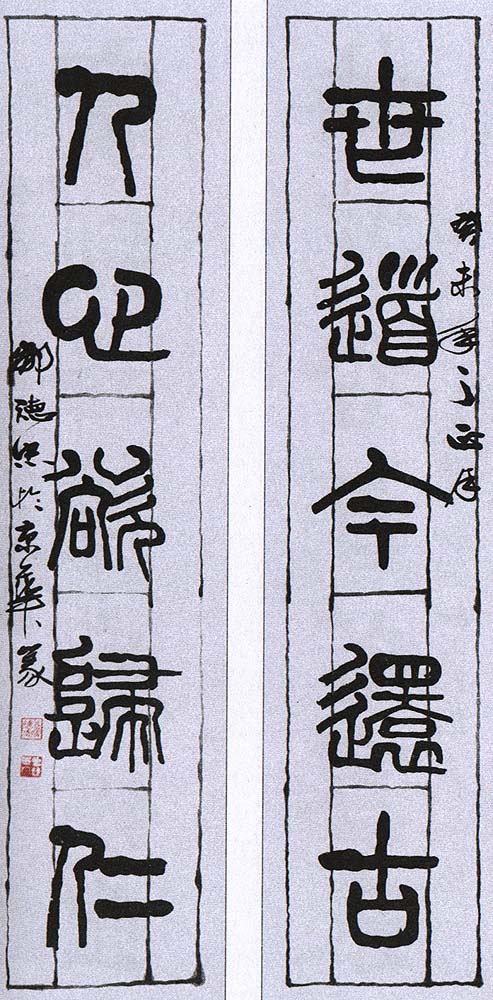 世道今還古
癸未年之正月
人心欲歸仁
鄒德忠於京華篆